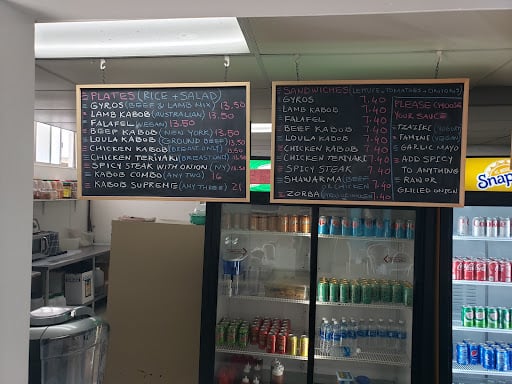 PLATES (RICE + SALAD)
GYROS (BEEF & LAMB MIX) 13.50
LAMB KABOB (AUSTRALIAN) 13.50
FALAFEL (VEGAN) 13.50
BEEF KABOB (NEW YORK) 13.50
LOULA KABOB (GROUND BEEF) 13.50
CHICKEN KABOB (BREAST ONLY) 13.50
CHICKEN TERIYAKI (BREAST ONLY) 13.50
SPICY STEAK WITH ONION (NY) 13.50
KABOB COMBO (ANY TWO) 16
KABOB SUPREME (ANY THREE) 21
SANDWICHES (LETTUCE + TOMATOES + ONIONS)
GYROS 7.40
LAMB KABOB 7.40
FALAFEL 7.40
BEEF KABOB 7.40
LOULA KABOB 7.40
CHICKEN KABOB 7.40
CHICKEN TERIYAKI 7.40
SPICY STEAK 7.40
SHAWARMA (BEEF OR CHICKEN) 7.40
ZORBA 7.40
PLEASE CHOOSE
YOUR SAUCE
TZAZIKI (YOGURT
TAHINI (VEGAN)
GARLIC MAYO
ADD SPICY
TO ANYTHING
RAW OR
GRILLED ONION
Snap